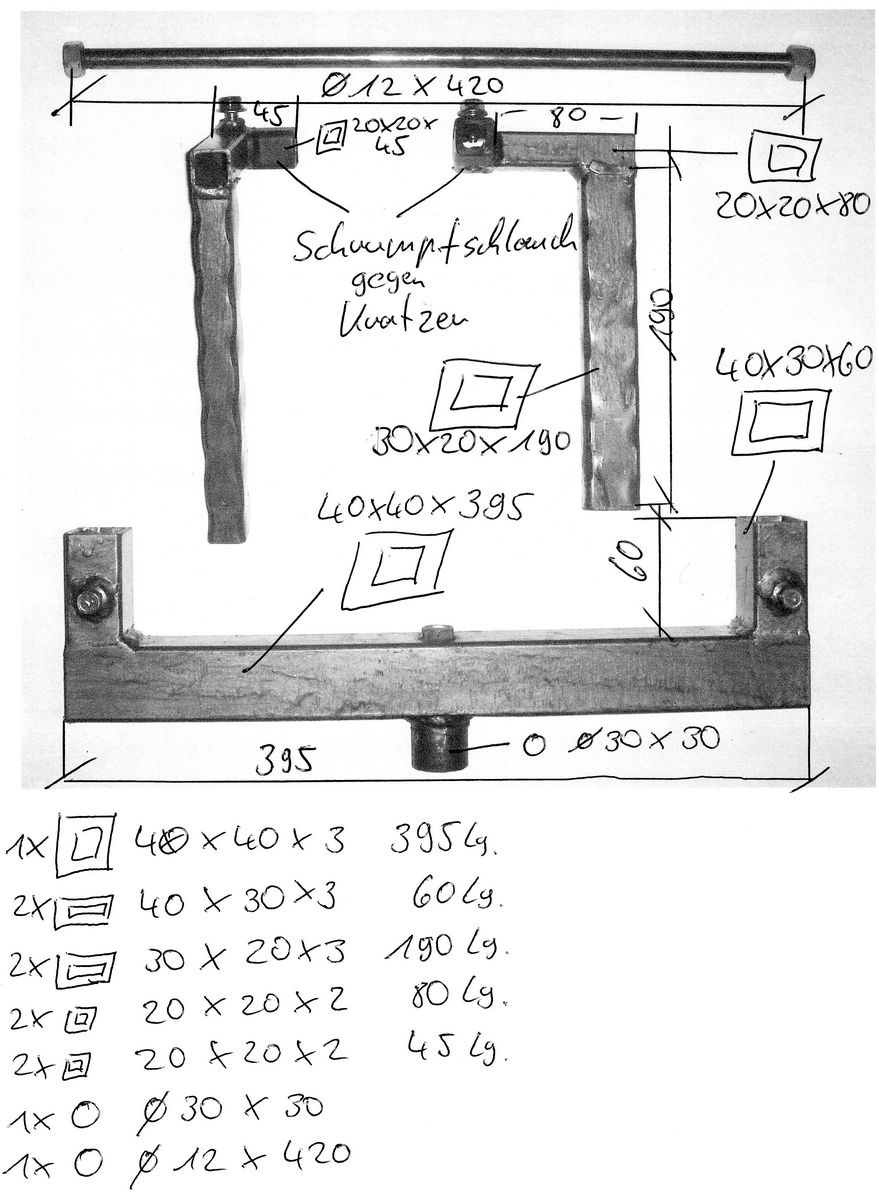 Ø 12 X 420
45
20x20x
45
80
20x20x80
Schrumpfschlauch
gegen
Kratzen
190
40x30x60
30x20x190
40x40x395
60
395
O Ø30x30
1x 40 x 40 x 3 395 lg.
2x 40 x 30 x 3 60 lg.
2x 30 x 20x3 190 lg.
2x 20 x 20 x 2 80 lg.
2x 20 x 20 x 2 45 lg.
1x O Ø 30 x 30
1x O Ø 12 x 420